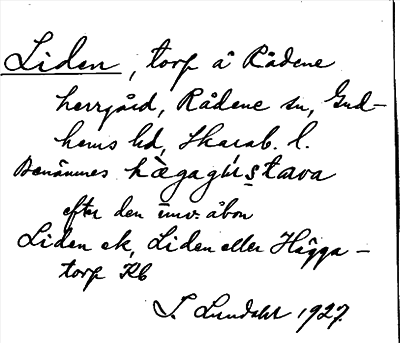 Liden, torp å Rådene
herrgård, Rådene sn, Gud-
hems hd, Skarab. l.
Benämnes hàgagu̇s̠tava
efter den inv. åbon
Liden ek, Liden eller Hägga-
torp Kb
I. Lundahl 1927.